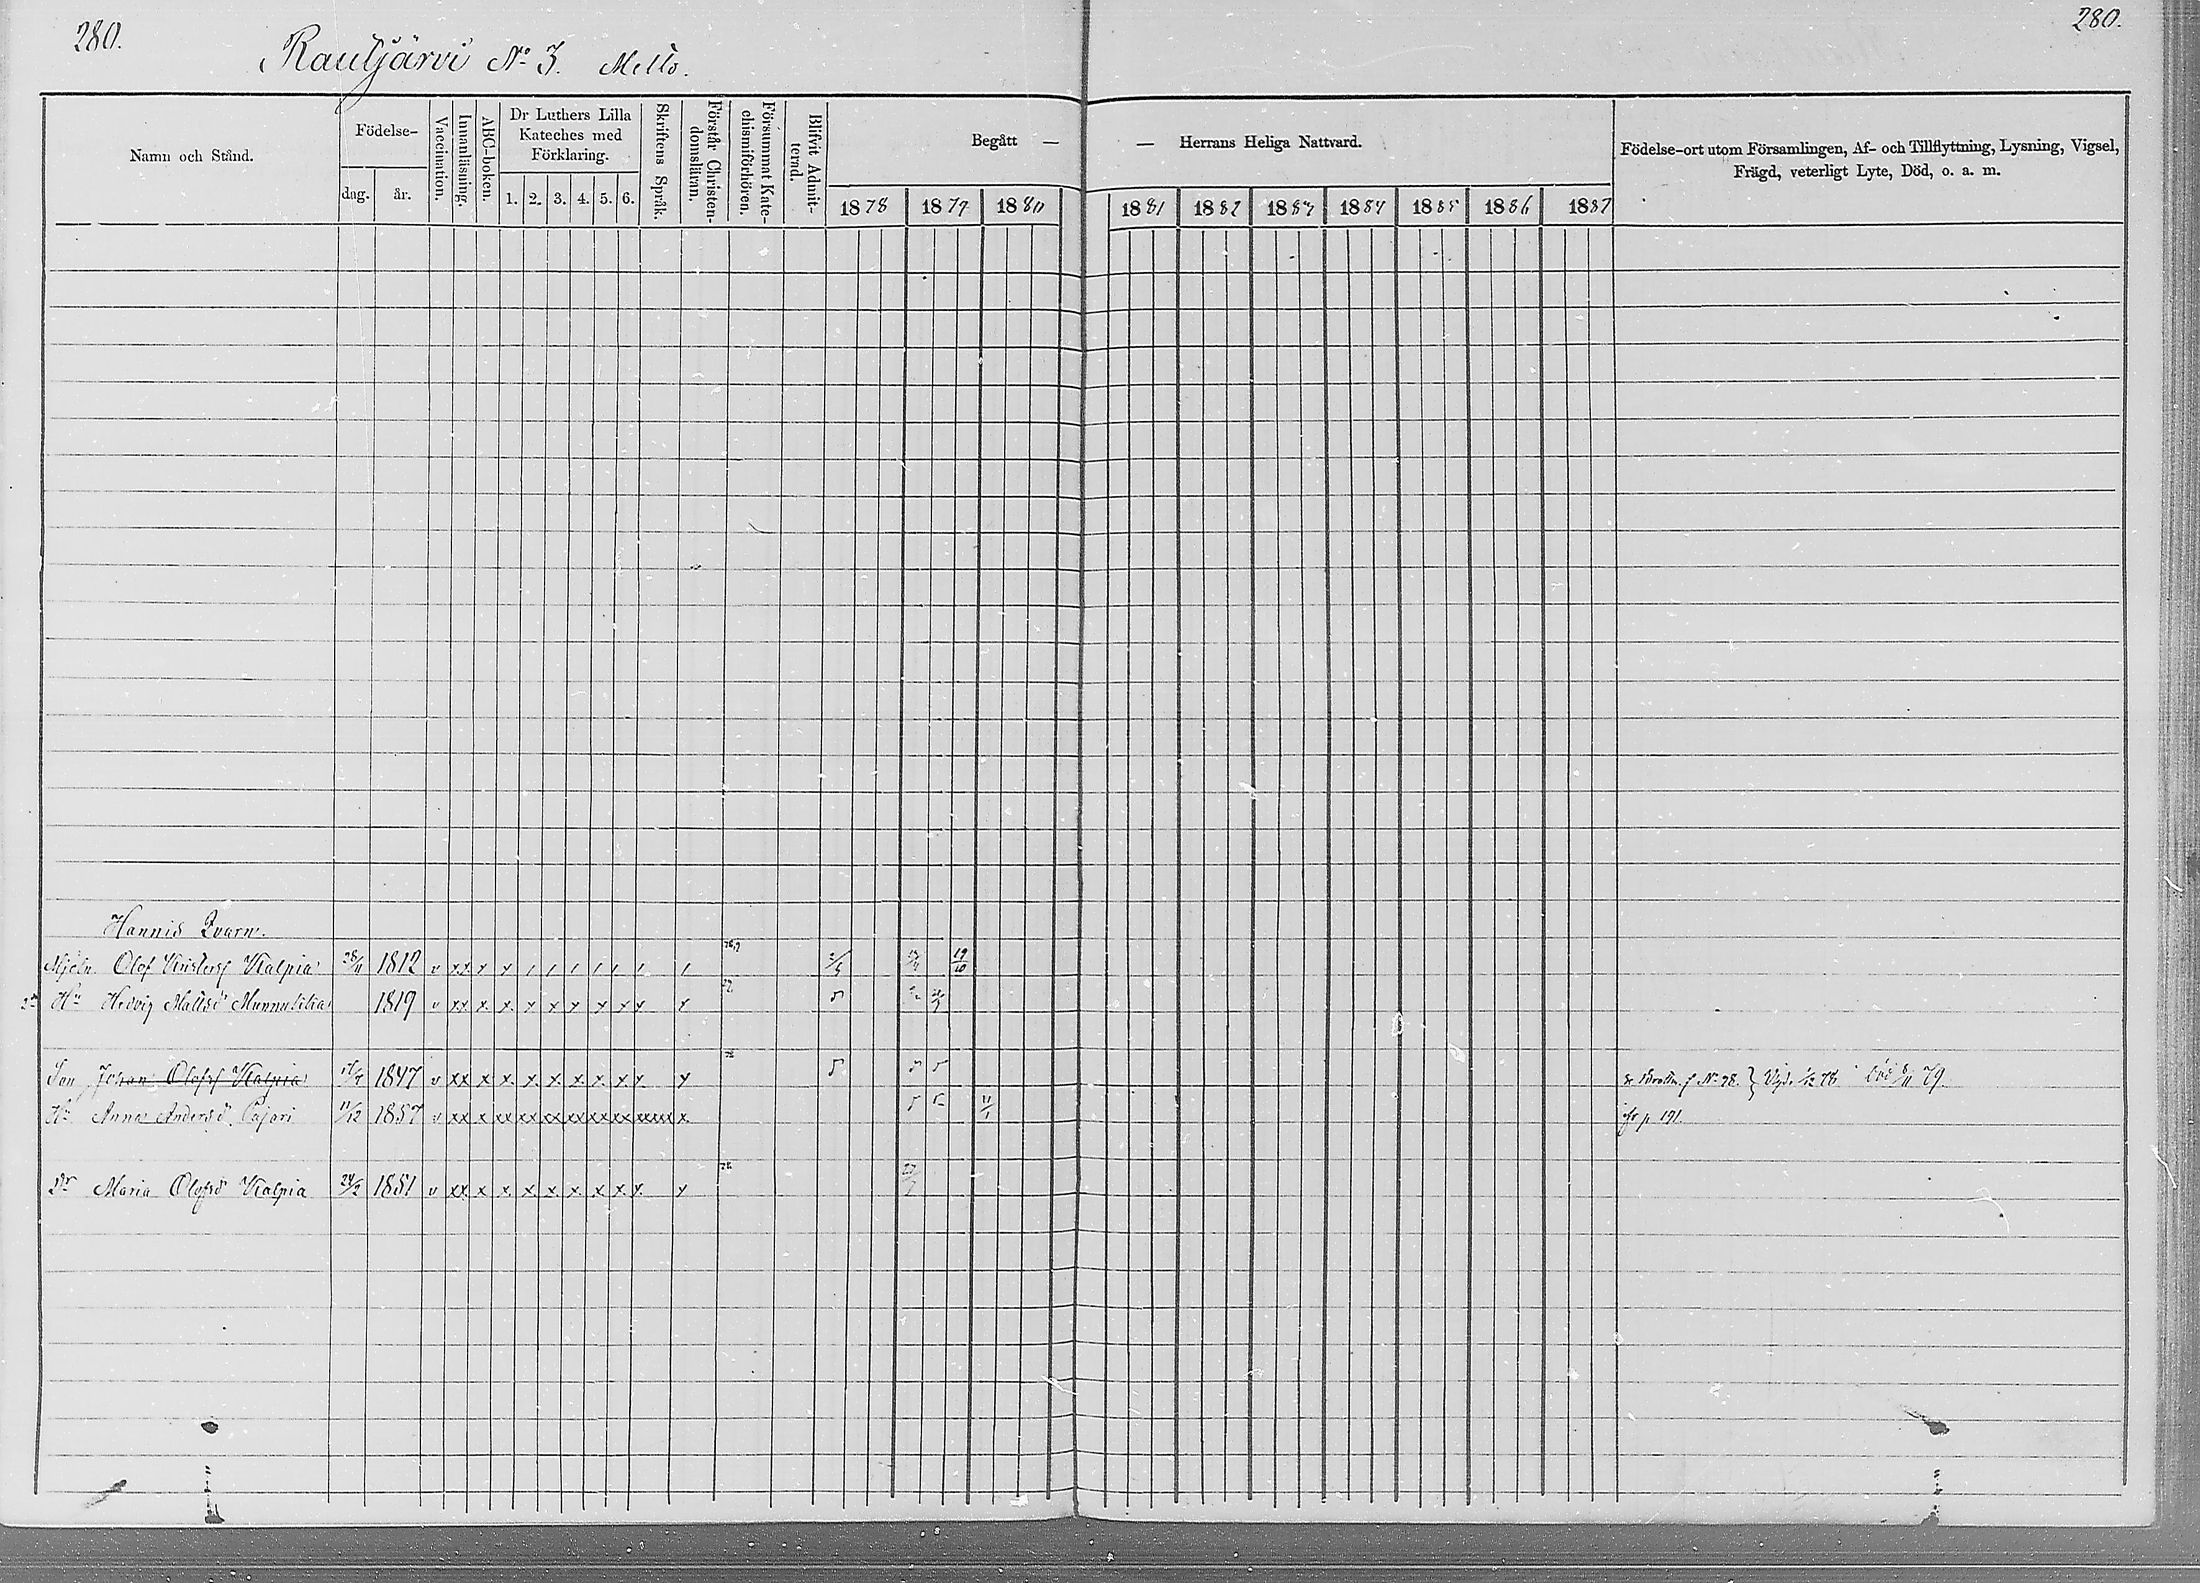 280.
Rautjärvi No 3. Mello.
280.
Namn och Stånd.
Födelse-
dag. år.
Vaccination.
Innanläsning.
ABC-boken.
Dr Luthers Lilla
Kateches med
Förklaring.
1. 2. 3. 4. 5. 6.
Skriftens Språk.
Förstår Christen-
domsläran.
Försummat Kate-
chismiförhören.
Blifvit Admit-
terad.
Begått —
— Herrans Heliga Nattvard.
1878 1879 1880 1881 1882 1883 1884 1885 1886 1887
Födelse-ort utom Församlingen, Af- och Tillflyttning, Lysning, Vigsel,
Frägd, veterligt Lyte, Död, o. a. m.
Hannis Qvarn.
Mjöln Olof Kalpia 28/11 1812 v xx x x 19/10
Hu Hedvig Mattsd 1819 v xx x x x x x x x x x
Son Johan Olofss Kalpia 1847 v xx x x x x x x x x x No 98. } Vigd. 1/12 78 död 8/11 79.
Hu Anna Andersd Pajari 11/12 1857 v xx x xx xx xx xx xx xx x 11/1 fr p 191.
Dr Maria Olofsd Kalpia 24/2 1851 v xx x x x x x x x x x